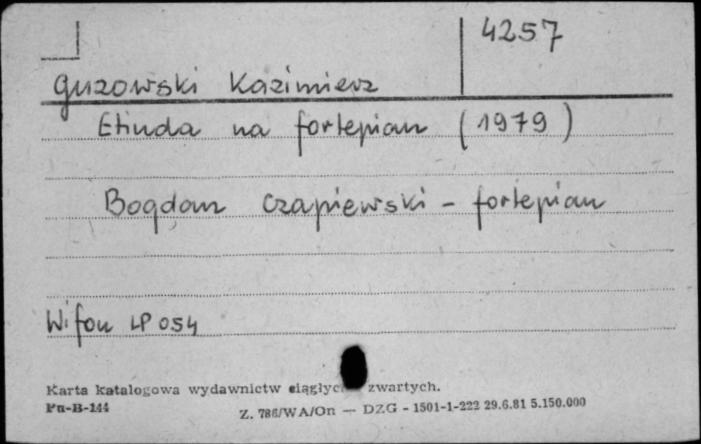 4257
Guzowski Kazimierz
Etiuda na fortepian (1979)
Bogdan Czapiewski - fortepian
Wifon LP 054
Karta katalogowa wydawnictw ciągłyc zwartych.
Pu-B-144
Z. 786/WA/On — DZG - 1501-1-222 29.6.81 5.150.000